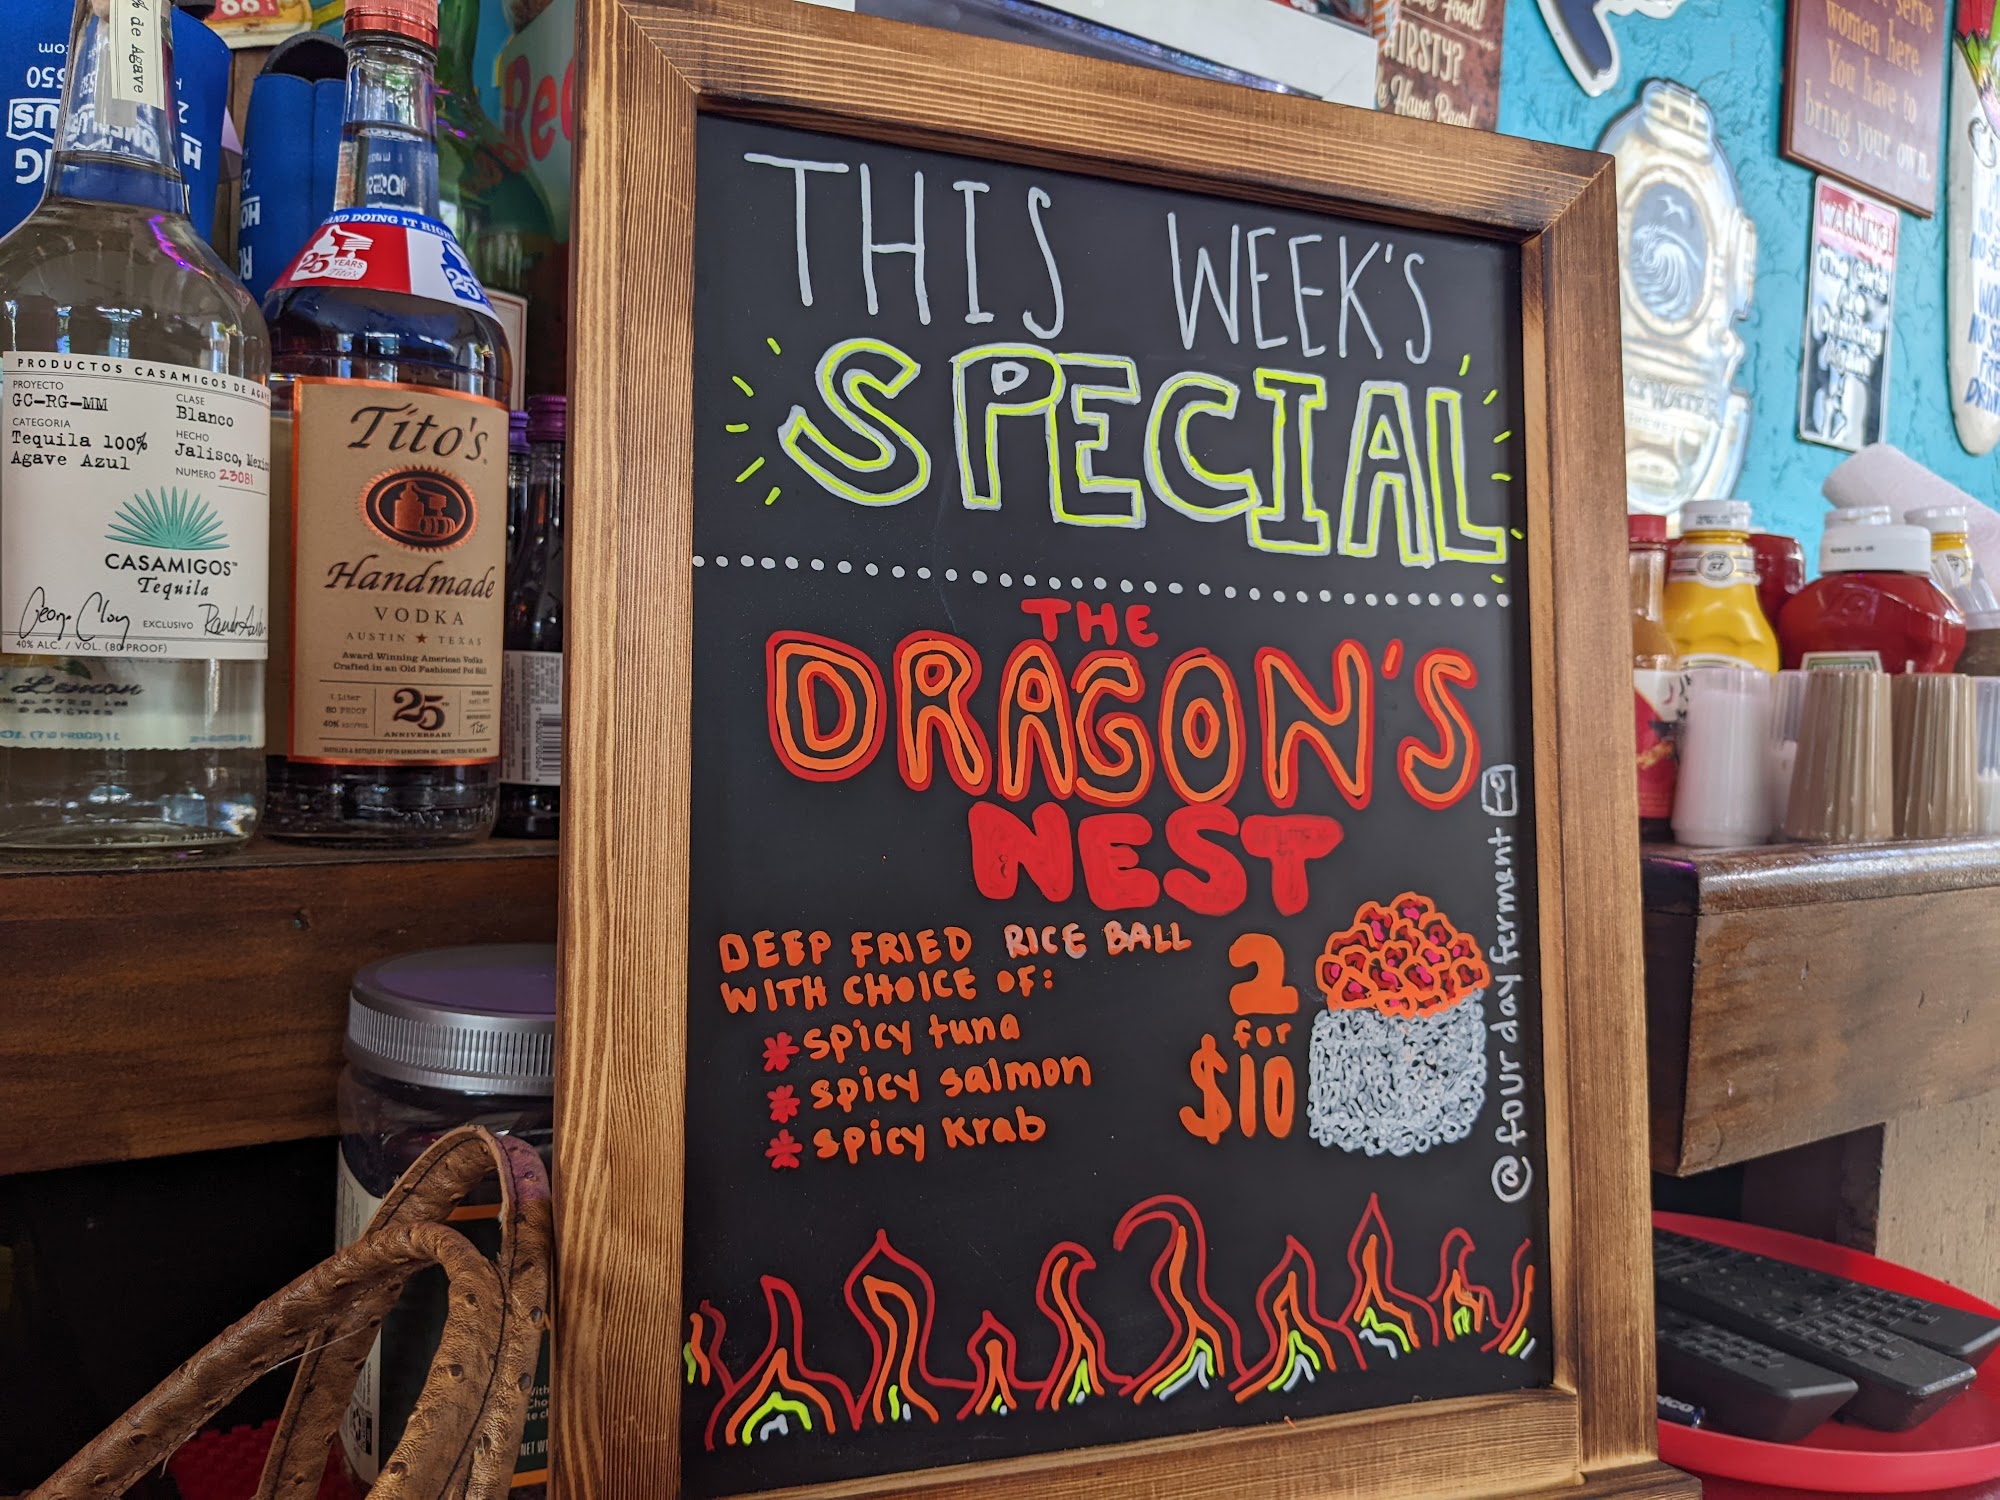 THIS WEEK'S
SPECIAL
THE
DRAGON'S
NEST
DEEP FRIED RICE BALL
WITH CHOICE OF:
* spicy tuna
* spicy salmon
* spicy Krab
2
for
$10
@fourdayferment
de Agave
PRODUCTOS CASAMIGOS DE AGA
PROYECTO
GC-RG-MM
CLASE
Blanco
CATEGORIA
Tequila 100%
Agave Azul
HECHO
Jalisco, Mexico
NUMERO 23081
CASAMIGOS™
Tequila
EXCLUSIVO
40% ALC. / VOL. (80 PROOF)
AND DOING IT RIGHT
25 YEARS
Tito's
25
Tito's
Handmade
VODKA
AUSTIN ★ TEXAS
Award Winning American Vodka
Crafted in an Old Fashioned Pot Still
1 Liter
80 PROOF
40% ALC/VOL
25TH
ANNIVERSARY
Tito
food!
THIRSTY?
Have Beer!
serve
women here.
You have to
bring your own.
WARNING!
57